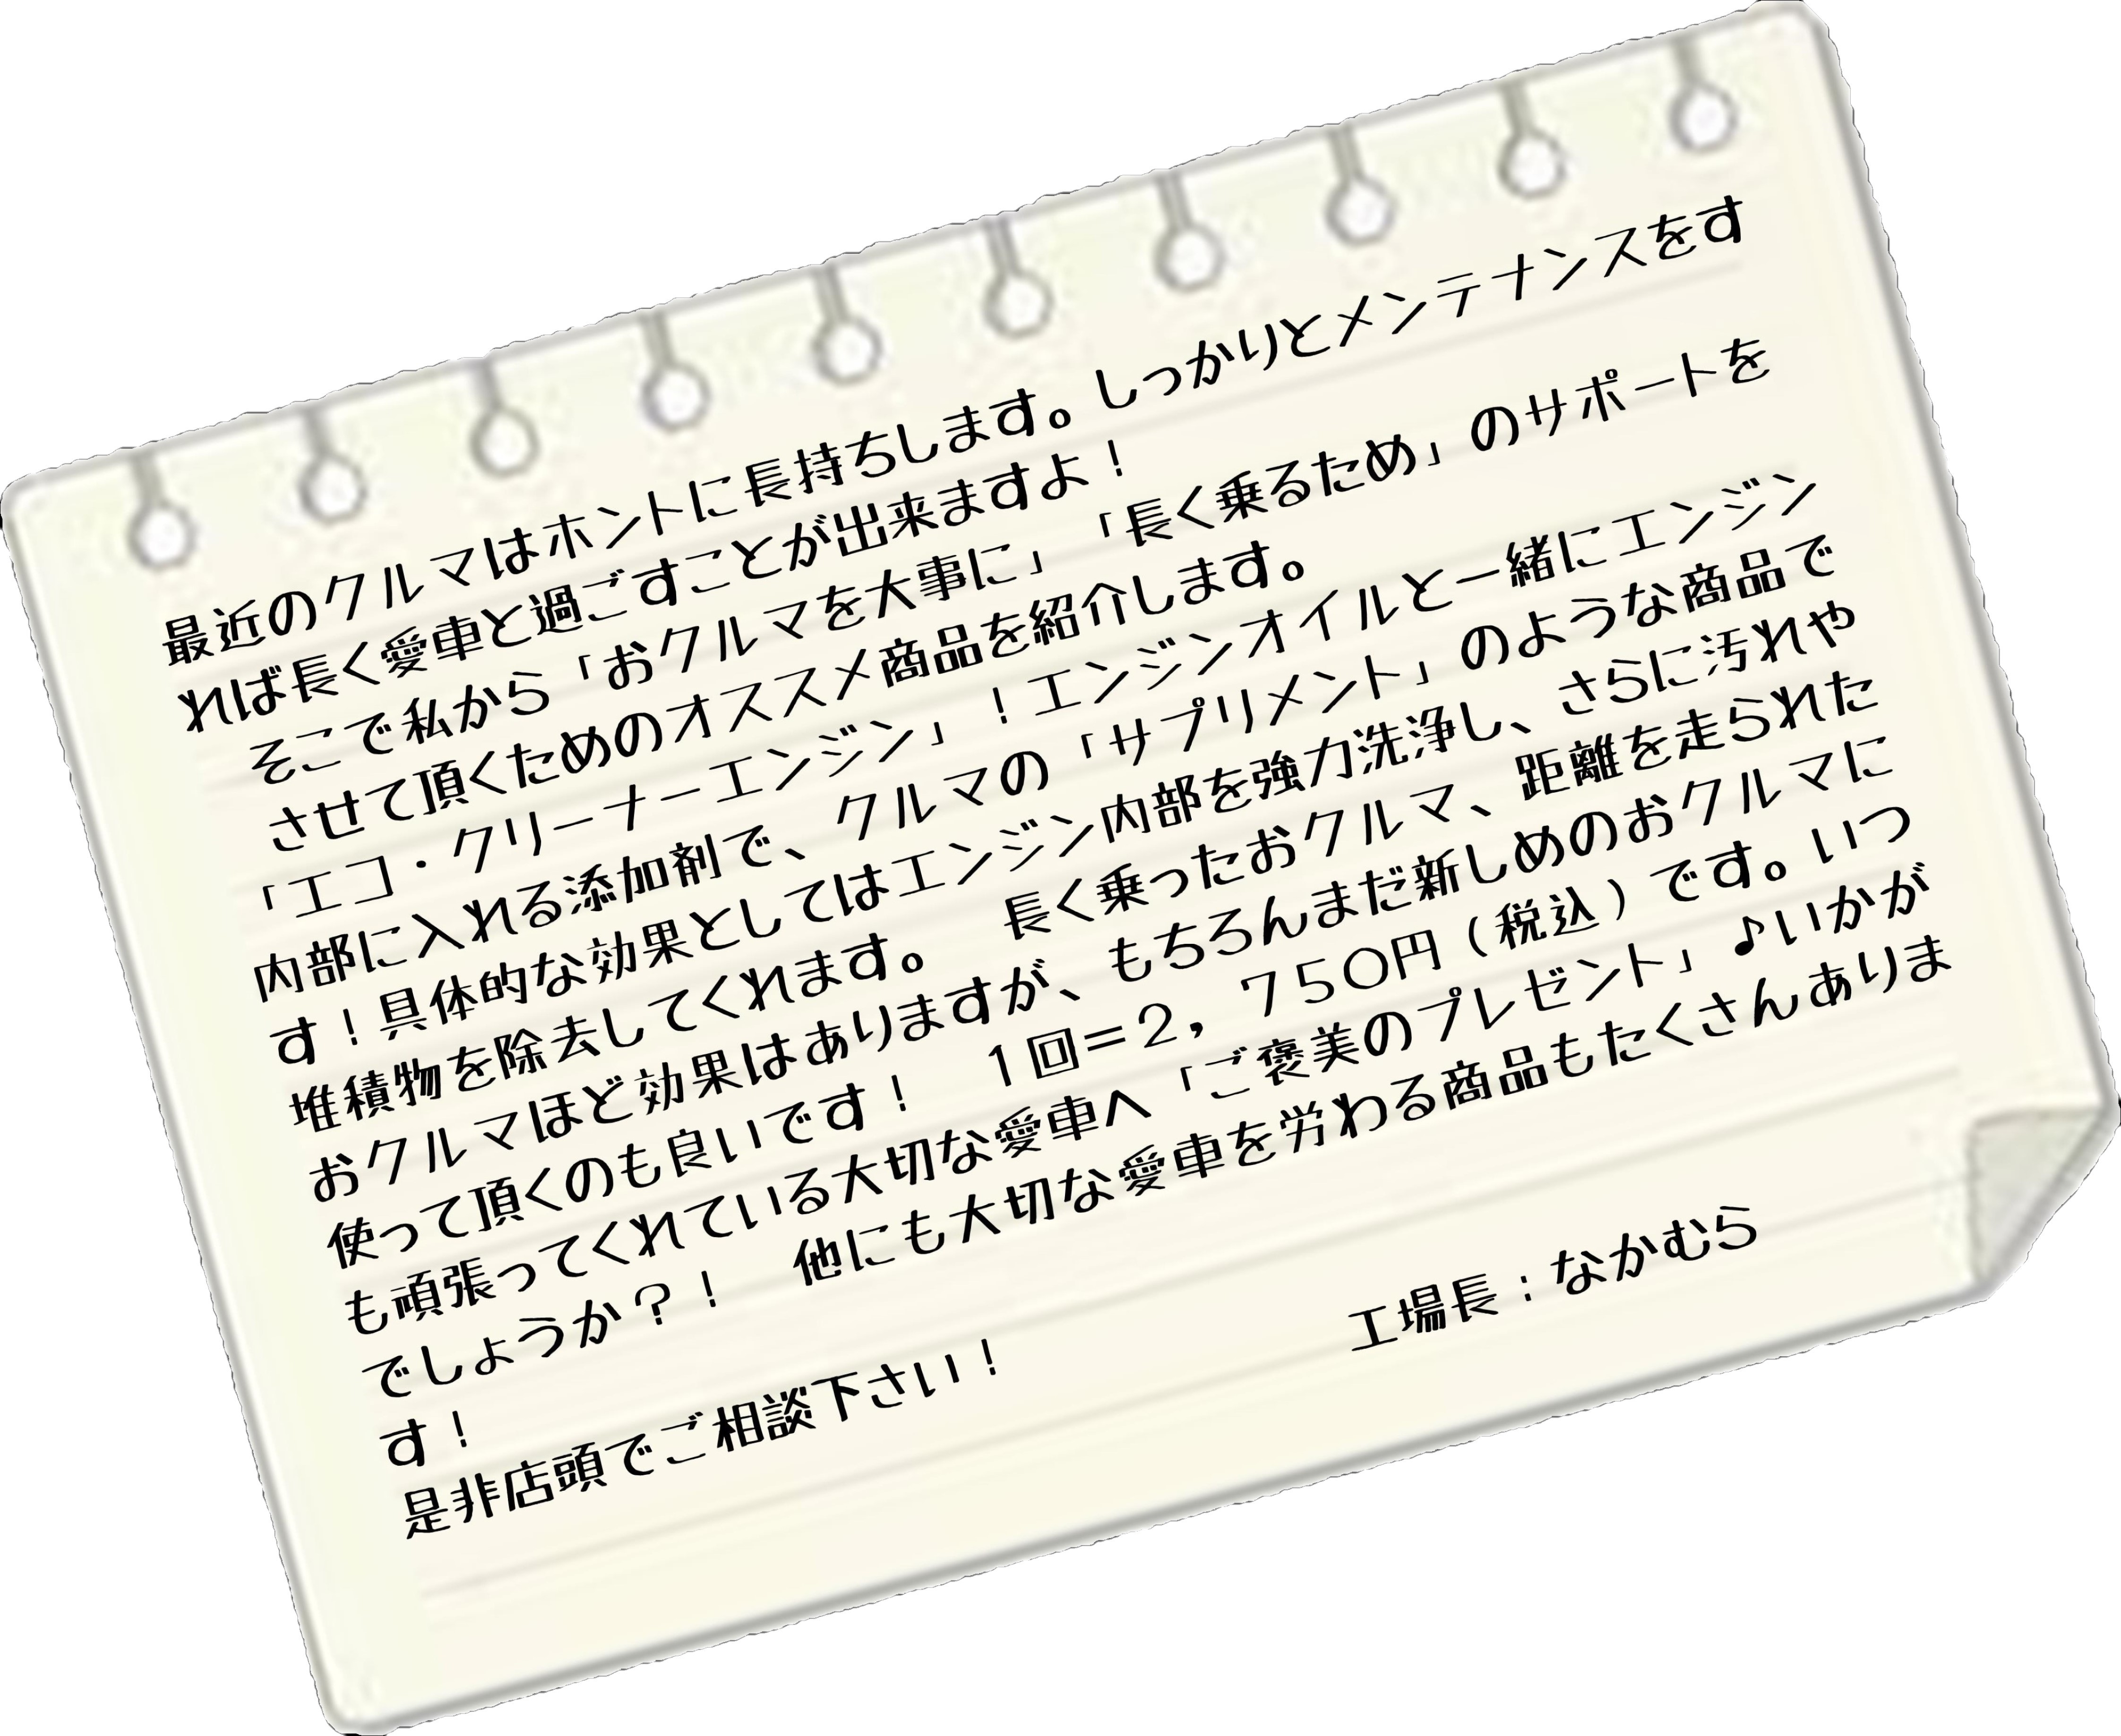 最近のクルマはホントに長持ちします。しっかりとメンテナンスをす
れば長く愛車と過ごすことが出来ますよ！
そこで私から「おクルマを大事に」「長く乗るため」のサポートを
させて頂くためのオススメ商品を紹介します。
「エコ・クリーナーエンジン」！エンジンオイルと一緒にエンジン
内部に入れる添加剤で、クルマの「サプリメント」のような商品で
す！具体的な効果としてはエンジン内部を強力洗浄し、さらに汚れや
堆積物を除去してくれます。　長く乗ったおクルマ、距離を走られた
おクルマほど効果はありますが、もちろんまだ新しめのおクルマに
使って頂くのも良いです！　１回＝２，７５０円（税込）です。いつ
も頑張ってくれている大切な愛車へ「ご褒美のプレゼント」♪いかが
でしょうか？！　他にも大切な愛車を労わる商品もたくさんありま
す！
是非店頭でご相談下さい！
工場長：なかむら